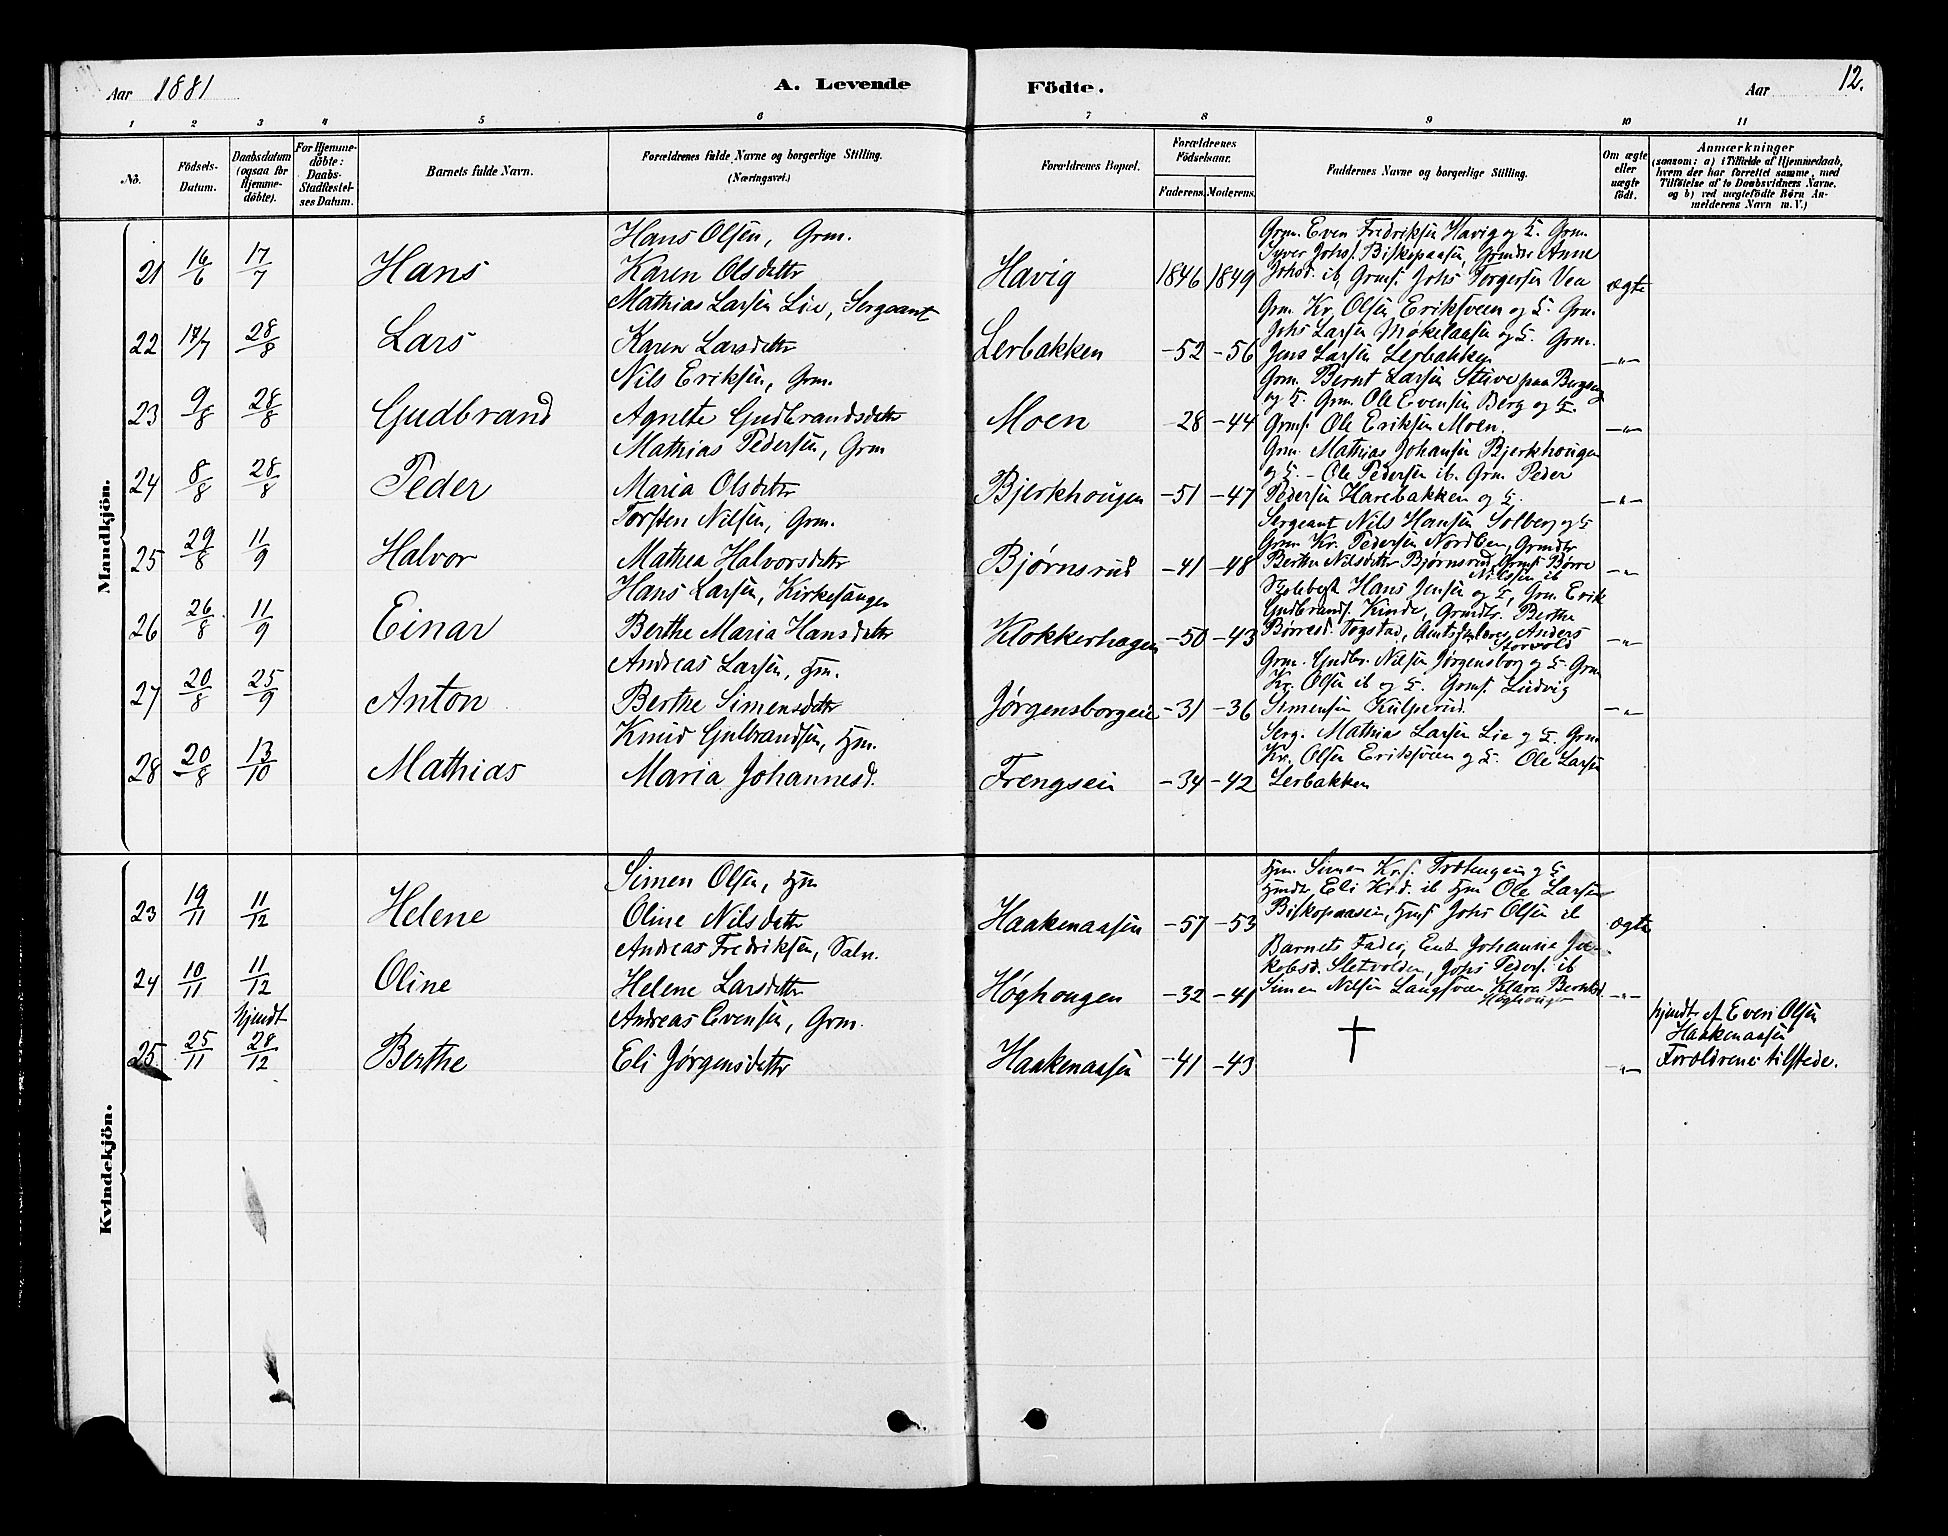 Aar 1881
A. Levende
Födte.
Aar
12.
1 2 3 4 5 6 7 8 9 10 11
No.
Födsels-
Datum.
Daabsdatum
(ogsaa for
Hjemme-
döbte).
For Hjemme-
döbte:
Daabs-
Stadfæstel-
ses Datum.
Barnets fulde Navn.
Forældrenes fulde Navne og borgerlige Stilling.
(Næringsvei.)
Forældrenes Bopæl.
Forældrenes
Födselsaar.
Faderens. Moderens.
Faddernes Navne og borgerlige Stilling.
Om ægte
eller
uægte
födt.
Anmærkninger
(saasom: a) i Tilfælde af Hjemmedaab,
hvem der har forrettet samme, med
Tilföielse af to Daabsvidners Navne,
og b) ved uegtefödte Börn An-
melderens Navn m. V.)
Mandkjön.
21 16/6 17/7 Hans
Hans Olsen, Grm.
Karen Olsdatter
Havig 1846 1849
Grm. Even Fredriksen Havig og K. Grm.
Syver Johs. Biskopaasen, Grmdtr Anne
Johsd. ib, Grmf. Johs Torgersen Vea
ægte
22 17/7 28/8 Lars
Mathias Larsen Lie, Sergeant
Karen Larsdatter
Lerbakken -52 -56
Grm. Kr. Olsen Eriksveen og K. Grm.
Johs Larsen Mökelaasen og K. Grm.
Jens Larsen Lerbakken
-"-
23 9/8 28/8 Gudbrand
Nils Eriksen, Grm.
Agnete Gudbrandsdatter
Moen -28 -44
Grm. Bernt Larsen Stuve paa Bergseng
og K. Grm. Ole Evensen Berg og K.
Grmf. Ole Eriksen Moen.
-"-
24 8/8 28/8 Peder
Mathias Pedersen, Grm
Maria Olsdatter
Bjerkhougen -51 -47
Grm. Mathias Johansen Bjerkhougen
og K. - Ole Pedersen ib. Grm. Peder
Pedersen Harebakken og K.
-"-
25 29/8 11/9 Halvor
Torsten Nilsen, Grm.
Mathea Halvorsdatter
Bjørnsrud -41 -48
Sergeant Nils Hansen Solberg og K
Grm Kr. Pedersen Nordben, Grmdtr
Berthe Nilsdatter Bjørnsrud, Grmf Børre
Nilssen ib
-"-
26 26/8 11/9 Einar
Hans Larsen, Kirkesanger
Berthe Maria Hansdatter
Klokkerhagen -50 -43
Skolebest. Hans Jensen og K, Grm. Erik
Gudbrands. Kinde, Grmdtr. Berthe
Børresd. Togstad, Anders
Storvold
-"-
27 20/8 25/9 Anton
Andreas Larsen, Hm.
Berthe Simensdatter
Jørgensborgeie -31 -36
Grm. Gudbr. Nilsen Jørgensborg og K. Grm
Kr. Olsen ib og K. Grmf. Ludvig
Simensen Kulperud.
-"-
28 20/8 13/10 Mathias
Knud Gulbrandsen, Hm.
Maria Johannesd.
Frengseie -34 -42
Serg. Mathias Larsen Lie og K Grm
Kr. Olsen Eriksveen og K. Ole Larsen
Lerbakken
Kvindekjön.
23 19/11 11/12 Helene
Simen Olsen, Hm
Oline Nilsdatter
Haakenaasen -57 -53
Hm. Simen Krs. og K
Hmdtr Eli Krd. ib Hm Ole Larsen
Biskopaasen, Hmf Johs Olsen ib
ægte
24 10/11 11/12 Oline
Andreas Fredriksen, Salm.
Helene Larsdatter
Høghougen -32 -41
Barnets Fader, Enk Johanna Ja-
kobsd. Sletvolden, Johs Peders. ib
Simen Nilsen Langsveen Klara Berntsd.
Høghougen
-"-
25 25/11 hjmdt 28/12 Berthe
Andreas Evensen, Grm.
Eli Jørgensdatter
Haakenaasen -41 -43
†
-"-
hjmdt. af Even Olsen
Haakenaasen
Forældrene tilstede.